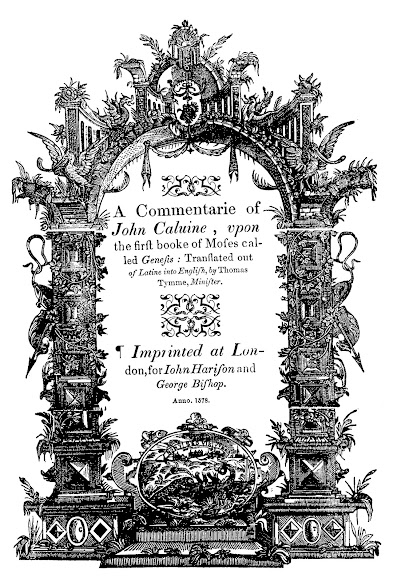 A Commentarie of
John Caluine, vpon
the firſt booke of Moſes cal-
led Geneſis: Tranſlated out
of Latine into Engliſh, by Thomas
Tymme, Miniſter.
¶ Imprinted at Lon-
don, for Iohn Hariſon and
George Biſhop.
Anno. 1578.